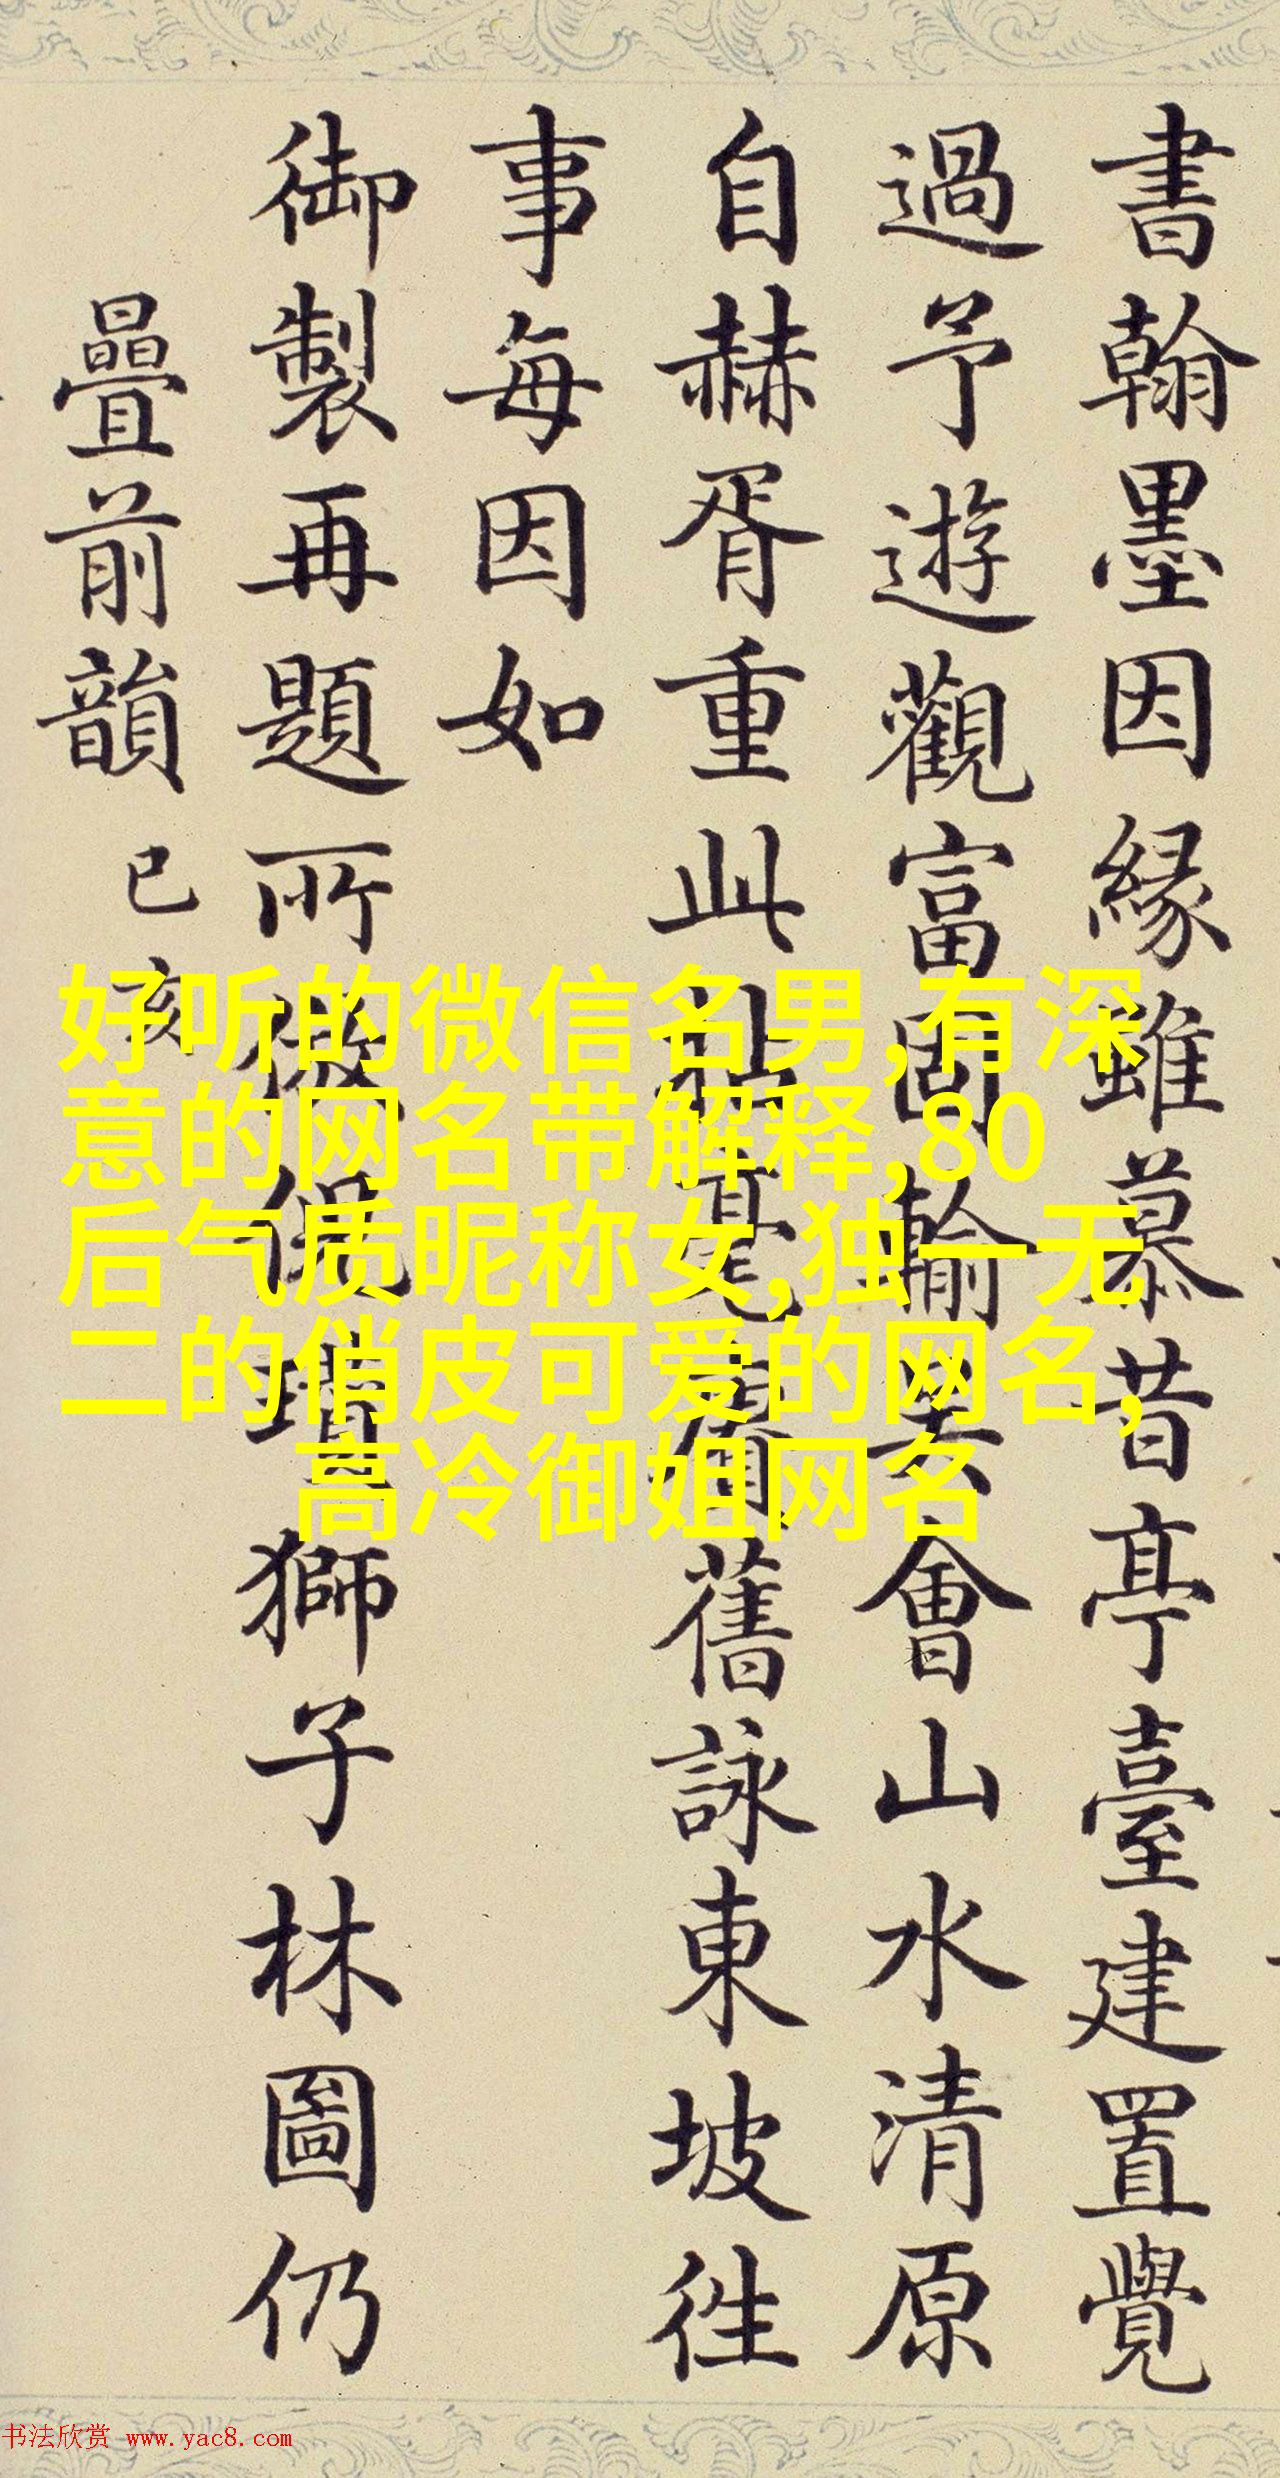 書翰墨因緣雖慕昔亭臺建置覺
過予遊觀富固輸吳會山水清原
自赫胥重此舊詠東坡往
事每因如
御製再題所倣倪瓚獅子林圖仍
疊前韻己亥
好听的微信名男,有深
意的网名带解释,80
后气质昵称女,独一无
二的俏皮可爱的网名,
高冷御姐网名
书法欣赏 www.yac8.com